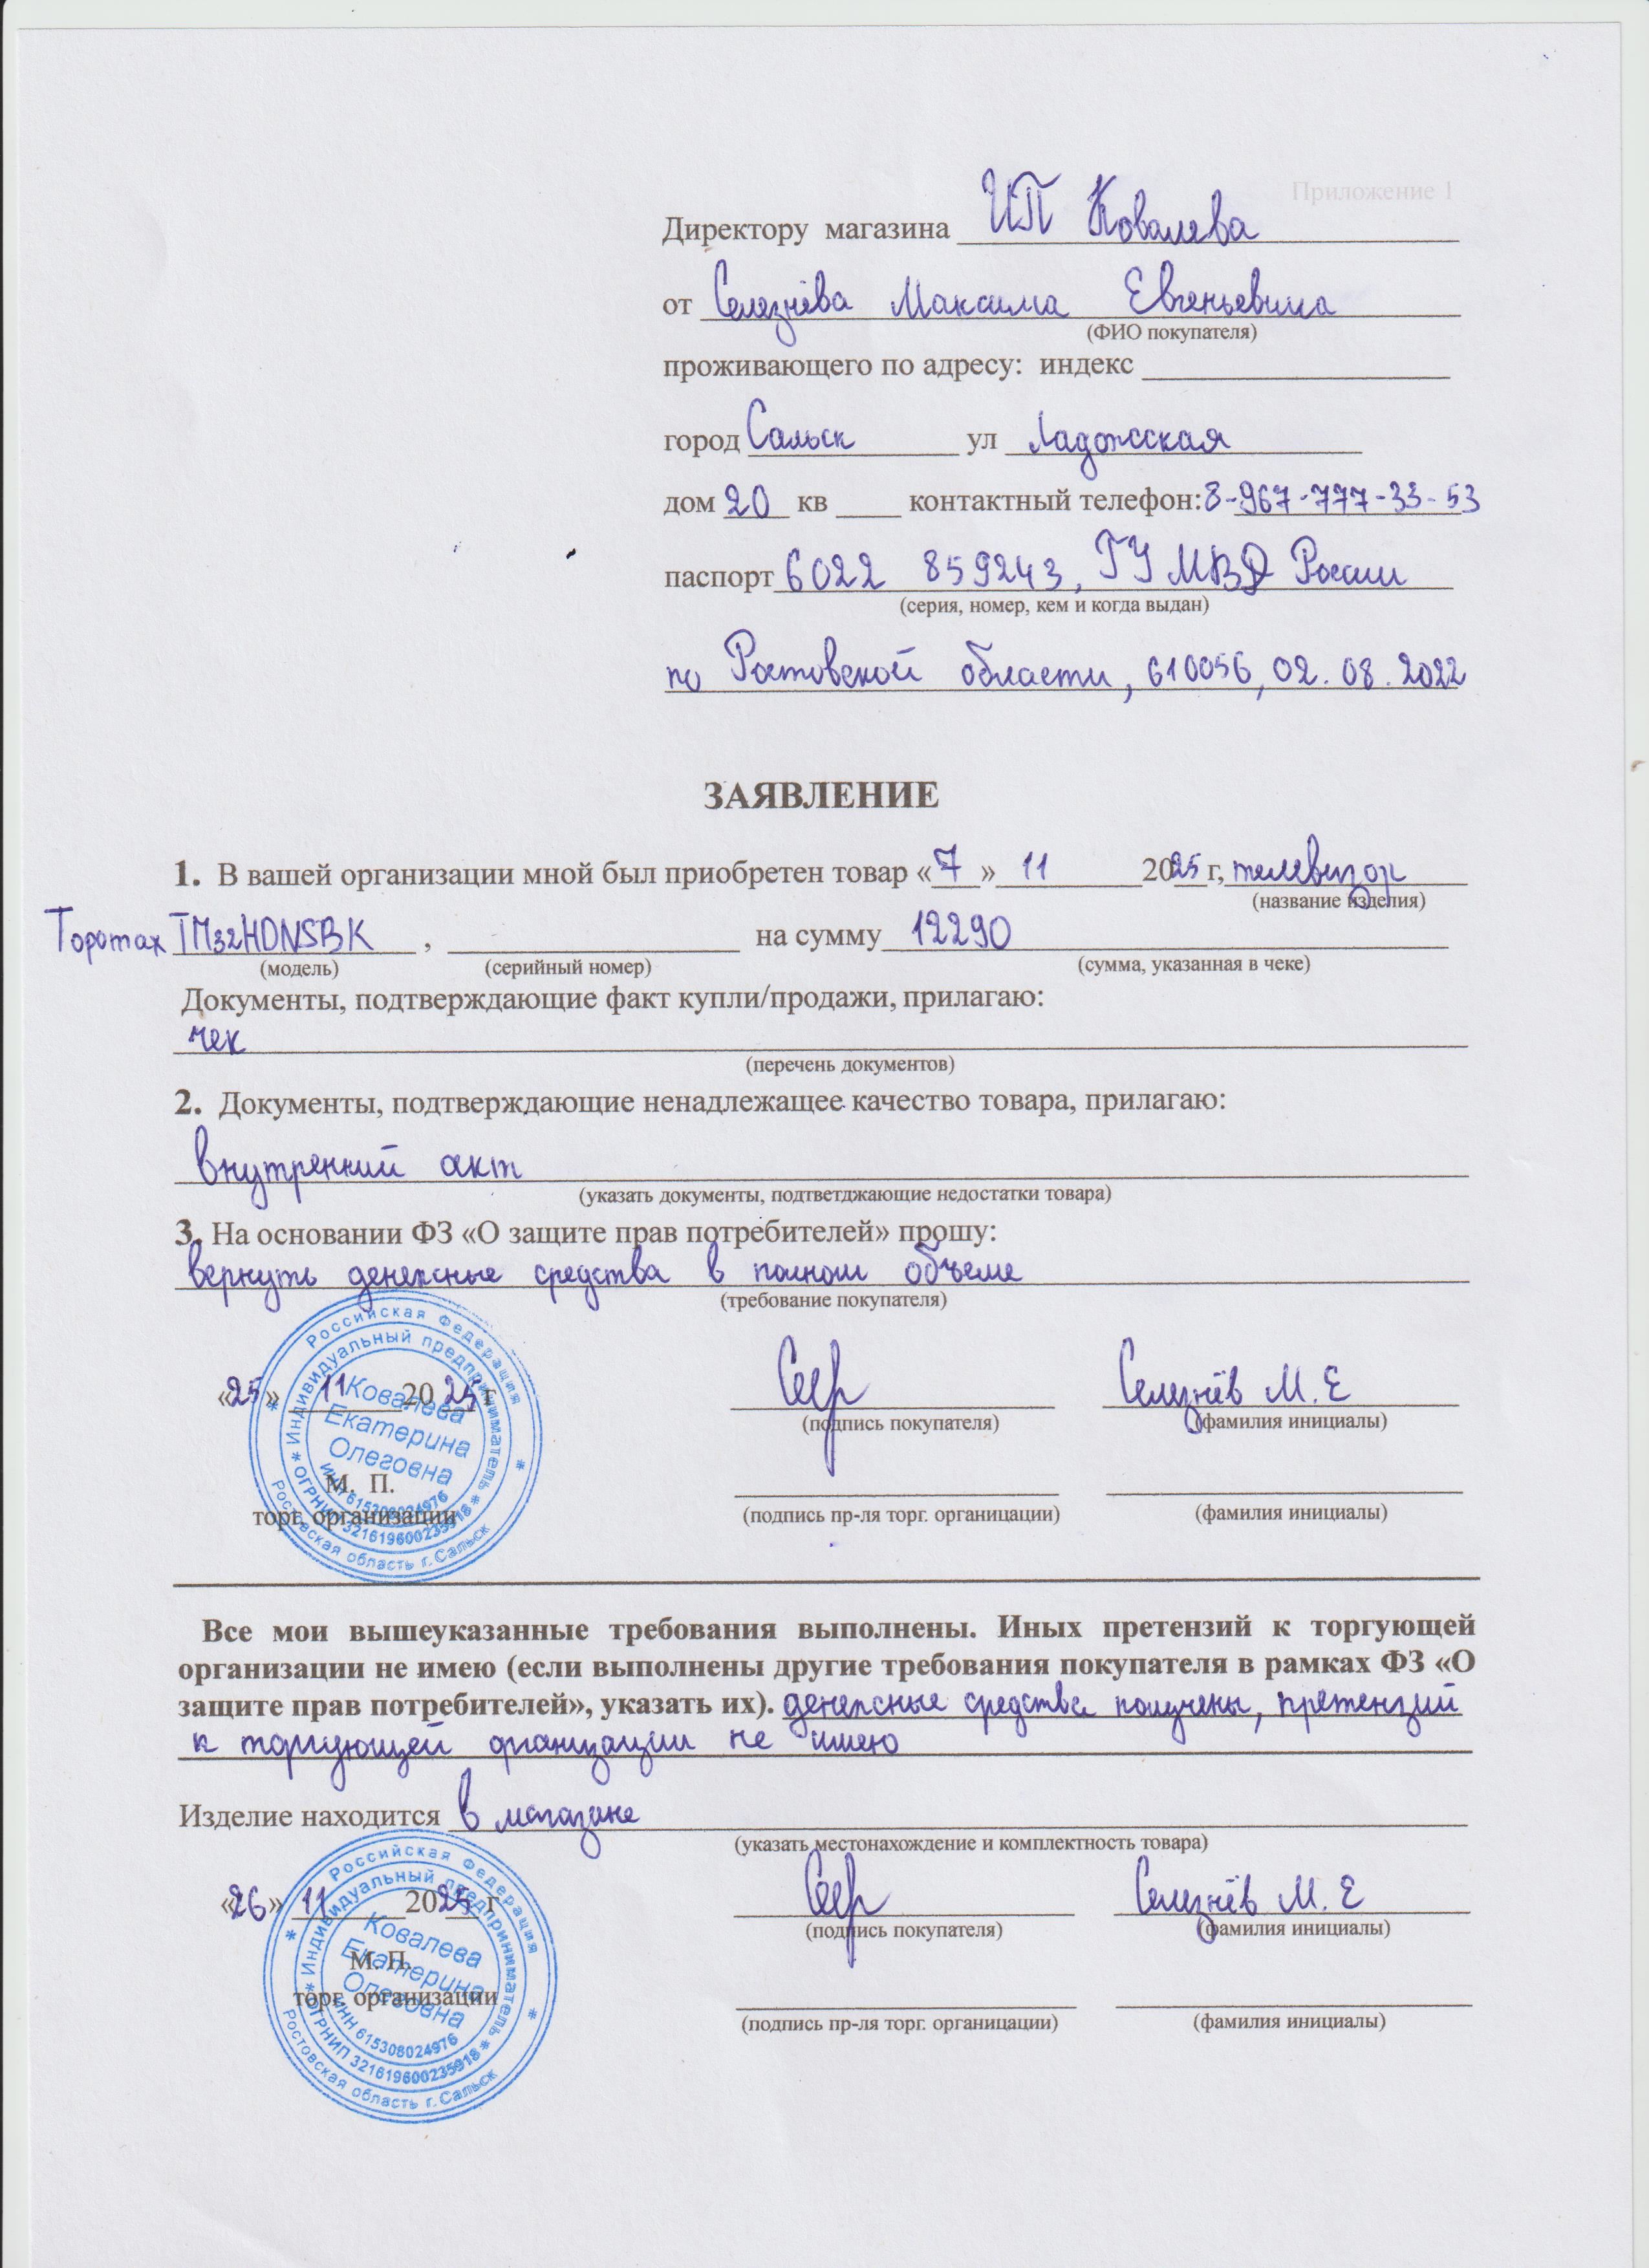 Приложение 1
Директору магазина ИП Ковалева
от Селезнёва Максима Евгеньевича
(ФИО покупателя)
проживающего по адресу: индекс
город Сальск ул Ладожсская
дом 20 кв контактный телефон: 8-967-777-33-53
паспорт 6022 859243, ГУ МВД России
(серия, номер, кем и когда выдан)
по Ростовской области, 610056, 02.08.2022
ЗАЯВЛЕНИЕ
1. В вашей организации мной был приобретен товар «7» 11 2025 г, телевизор
(название изделия)
Topomax TM32HDNSBK , на сумму 12290
(модель) (серийный номер) (сумма, указанная в чеке)
Документы, подтверждающие факт купли/продажи, прилагаю:
чек
(перечень документов)
2. Документы, подтверждающие ненадлежащее качество товара, прилагаю:
внутренний акт
(указать документы, подтветджающие недостатки товара)
3. На основании ФЗ «О защите прав потребителей» прошу:
вернуть денежные средства в полном объеме
(требование покупателя)
«25» 11 2025 г Селезнёв М.Е
(подпись покупателя) (фамилия инициалы)
М. П.
торг. организации
(подпись пр-ля торг. органицации) (фамилия инициалы)
Российская Федерация
Индивидуальный предприниматель
Ковалева
Екатерина
Олеговна
ИНН 615308024976
ОГРНИП 321619600235918
Ростовская область г. Сальск
Все мои вышеуказанные требования выполнены. Иных претензий к торгующей
организации не имею (если выполнены другие требования покупателя в рамках ФЗ «О
защите прав потребителей», указать их). денежные средства получены, претензий
к торгующей организации не имею
Изделие находится в магазине
(указать местонахождение и комплектность товара)
«26» 11 2025 г Селезнёв М.Е
(подпись покупателя) (фамилия инициалы)
М. П.
торг. организации
(подпись пр-ля торг. органицации) (фамилия инициалы)
Российская Федерация
Индивидуальный предприниматель
Ковалева
Екатерина
Олеговна
ИНН 615308024976
ОГРНИП 321619600235918
Ростовская область г. Сальск